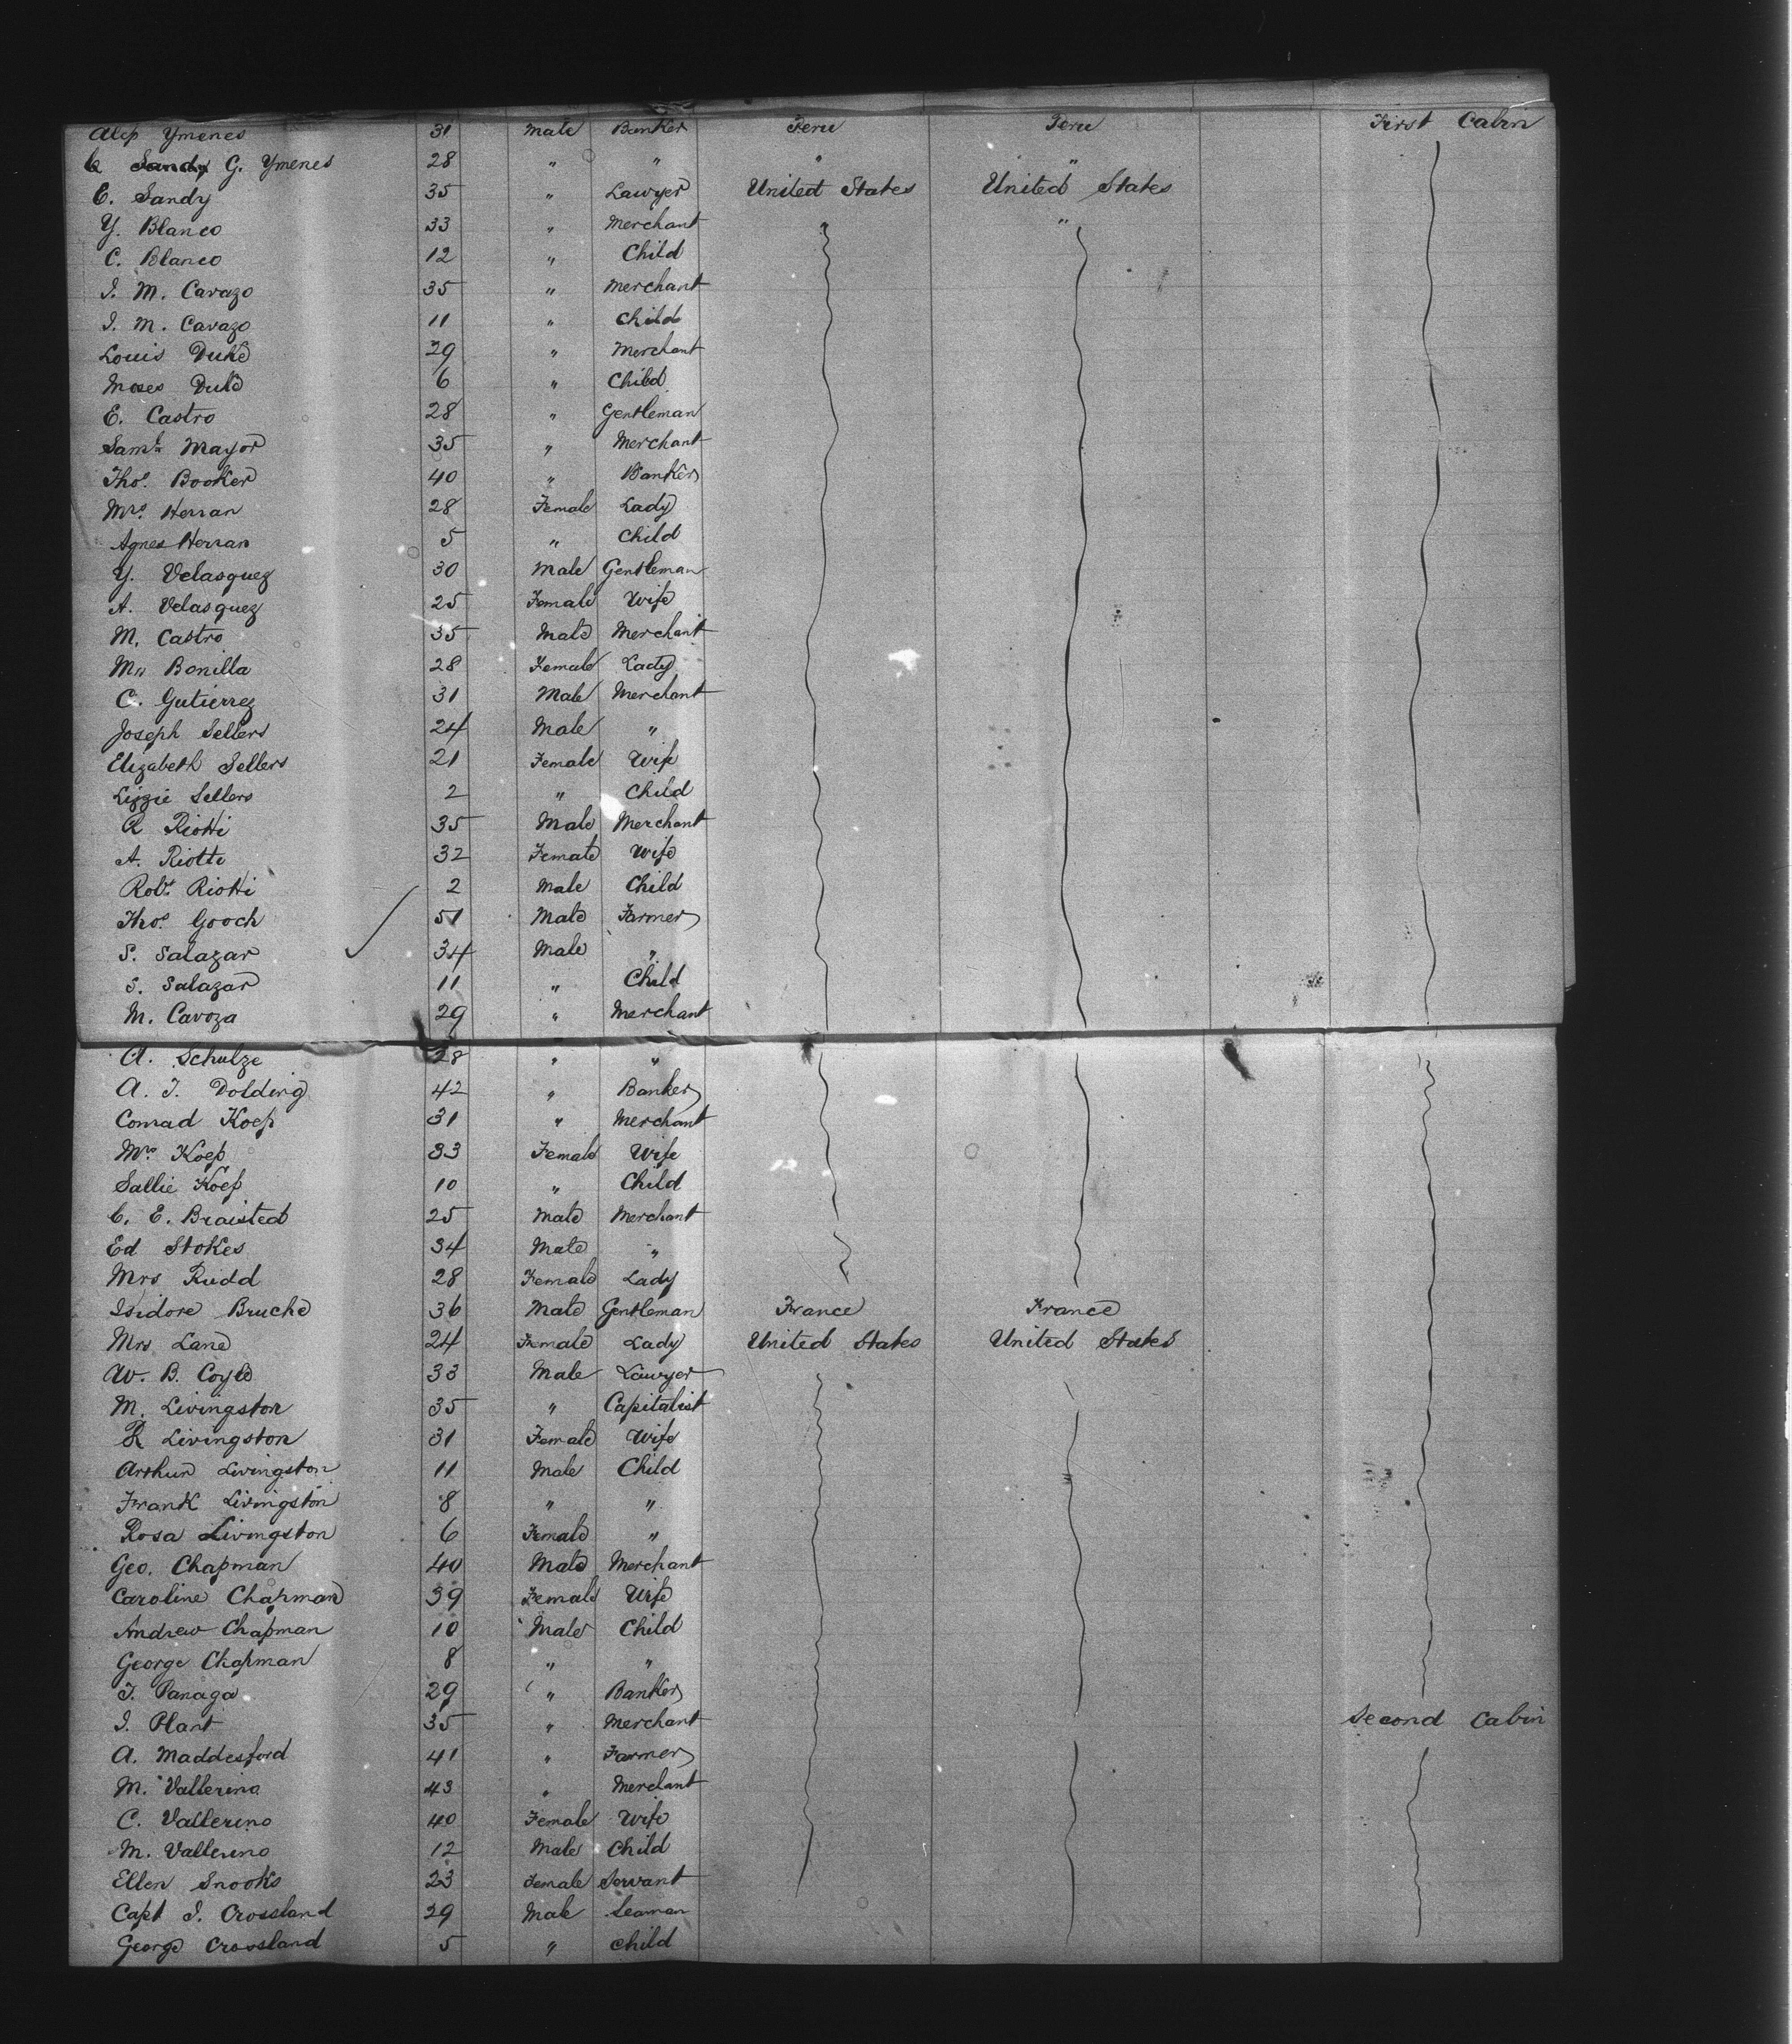 Alep Ymenes 31 Male Banker Peru Peru First Cabin
C Sandy G. Ymenes 28 " " " "
E. Sandy 35 " Lawyer United States United States
Y. Blanco 33 " Merchant " "
C. Blanco 12 " Child
J. M. Cavazo 35 " Merchant
J. M. Cavazo 11 " Child
Louis Duke 29 " Merchant
Moses Duke 6 " Child
E. Castro 28 " Gentleman
Saml. Mayor 35 " Merchant
Thos. Booker 40 " Banker
Mrs. Herran 28 Female Lady
Agnes Herran 5 " Child
Y. Velasquez 30 Male Gentleman
A. Velasquez 25 Female Wife
M. Castro 35 Male Merchant
Mrs Bonilla 28 Female Lady
C. Gutierrez 31 Male Merchant
Joseph Sellers 24 Male "
Elizabeth Sellers 21 Female Wife
Lizzie Sellers 2 " Child
R Riotti 35 Male Merchant
A. Riotte 32 Female Wife
Robt. Riotti 2 Male Child
Thos. Gooch 51 Male Farmer
S. Salazar 34 Male "
S. Salazar 11 " Child
M. Cavoza 29 " Merchant
A. Schulze 28 " "
A. J. Dolding 42 " Banker
Conrad Koep 31 " Merchant
Mrs. Koep 33 Female Wife
Sallie Koep 10 " Child
C. E. Braisted 25 Male Merchant
Ed Stokes 34 Male "
Mrs Rudd 28 Female Lady
Isidore Bruche 36 Male Gentleman France France
Mrs Lane 24 Female Lady United States United States
W. B. Coyle 33 Male Lawyer
M. Livingston 35 " Capitalist
R Livingston 31 Female Wife
Arthur Livingston 11 Male Child
Frank Livingston 8 " "
Rosa Livingston 6 Female "
Geo. Chapman 40 Male Merchant
Caroline Chapman 39 Female Wife
Andrew Chapman 10 Male Child
George Chapman 8 " "
J. Panaga 29 " Banker
J. Plant 35 " Merchant Second Cabin
A. Maddesford 41 " Farmer
M. Vallerino 43 " Merchant
C. Vallerino 40 Female Wife
M. Vallerino 12 Male Child
Ellen Snooks 23 Female Servant
Capt J. Crossland 29 Male Seaman
George Crossland 5 " Child